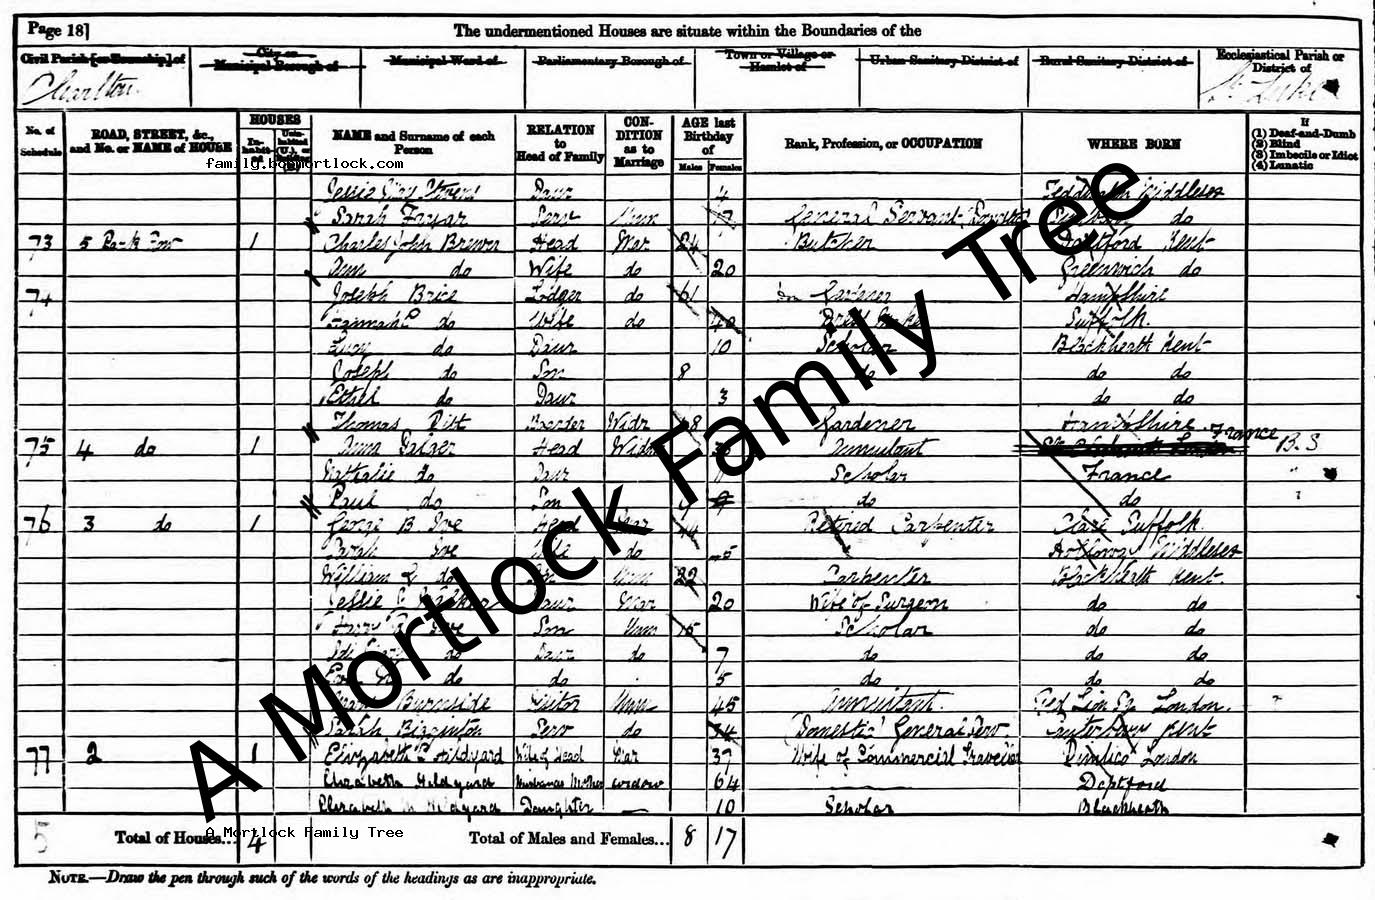 Page 18]
The undermentioned Houses are situate within the Boundaries of the
Civil Parish [or Township] of
City or Municipal Borough of
Municipal Ward of
Parliamentary Borough of
Town or Village or Hamlet of
Urban Sanitary District of
Rural Sanitary District of
Ecclesiastical Parish or District of
Charlton
St. Luke
No. of Schedule
ROAD, STREET, &c., and No. or NAME of HOUSE
HOUSES
In-habited
Unin-habited (U.), or
NAME and Surname of each Person
RELATION to Head of Family
CON-DITION as to Marriage
AGE last Birthday of
Males
Females
Rank, Profession, or OCCUPATION
WHERE BORN
If
(1) Deaf-and-Dumb
(2) Blind
(3) Imbecile or Idiot
(4) Lunatic
family.bobmortlock.com
Jessie Daur 4 Middlesex
Sarah Serv Unm General Servant do
73 5 Park Row 1 Charles John Brewer Head Mar 24 Butcher Kent
Ann do Wife do 20 Greenwich do
74 Joseph Brice Lodger do 61 Gardener Hampshire
Hannah do Wife do 40 Suffolk.
Lucy do Daur 10 Scholar Blackheath Kent
Joseph do Son 8 do do do
Ethel do Daur 3 do do
Thomas Boarder Widr Gardener Hampshire
75 4 do 1 Head Wid Annuitant France B.S
Nathalie do Daur 11 Scholar France "
Paul do Son 9 do do
76 3 do 1 George B Ive Head Mar Retired Carpenter Clare Suffolk.
Sarah Ive Wife do Middlesex
William do Son Unm 22 Carpenter Blackheath Kent.
Jessie Daur Mar 20 Wife of Surgeon do do
Ive Son Unm 15 Scholar do do
do Daur do 7 do do do
do do 5 do do do
Burnside Visitor Unm 45 Annuitant. Red Lion Sq London.
Sarah Serv do 34 (Domestic) General Serv. Canterbury Kent
77 2 1 Elizabeth Hildyard Wife of Head Mar 37 Wife of Commercial Traveller Pimlico London
Elizabeth Hildyard Husbands Mother widow 64 Deptford
Elizabeth Hildyard Daughter 10 Scholar Blackheath
5 Total of Houses... 4 Total of Males and Females... 8 17
A Mortlock Family Tree
NOTE.—Draw the pen through such of the words of the headings as are inappropriate.
A Mortlock Family Tree